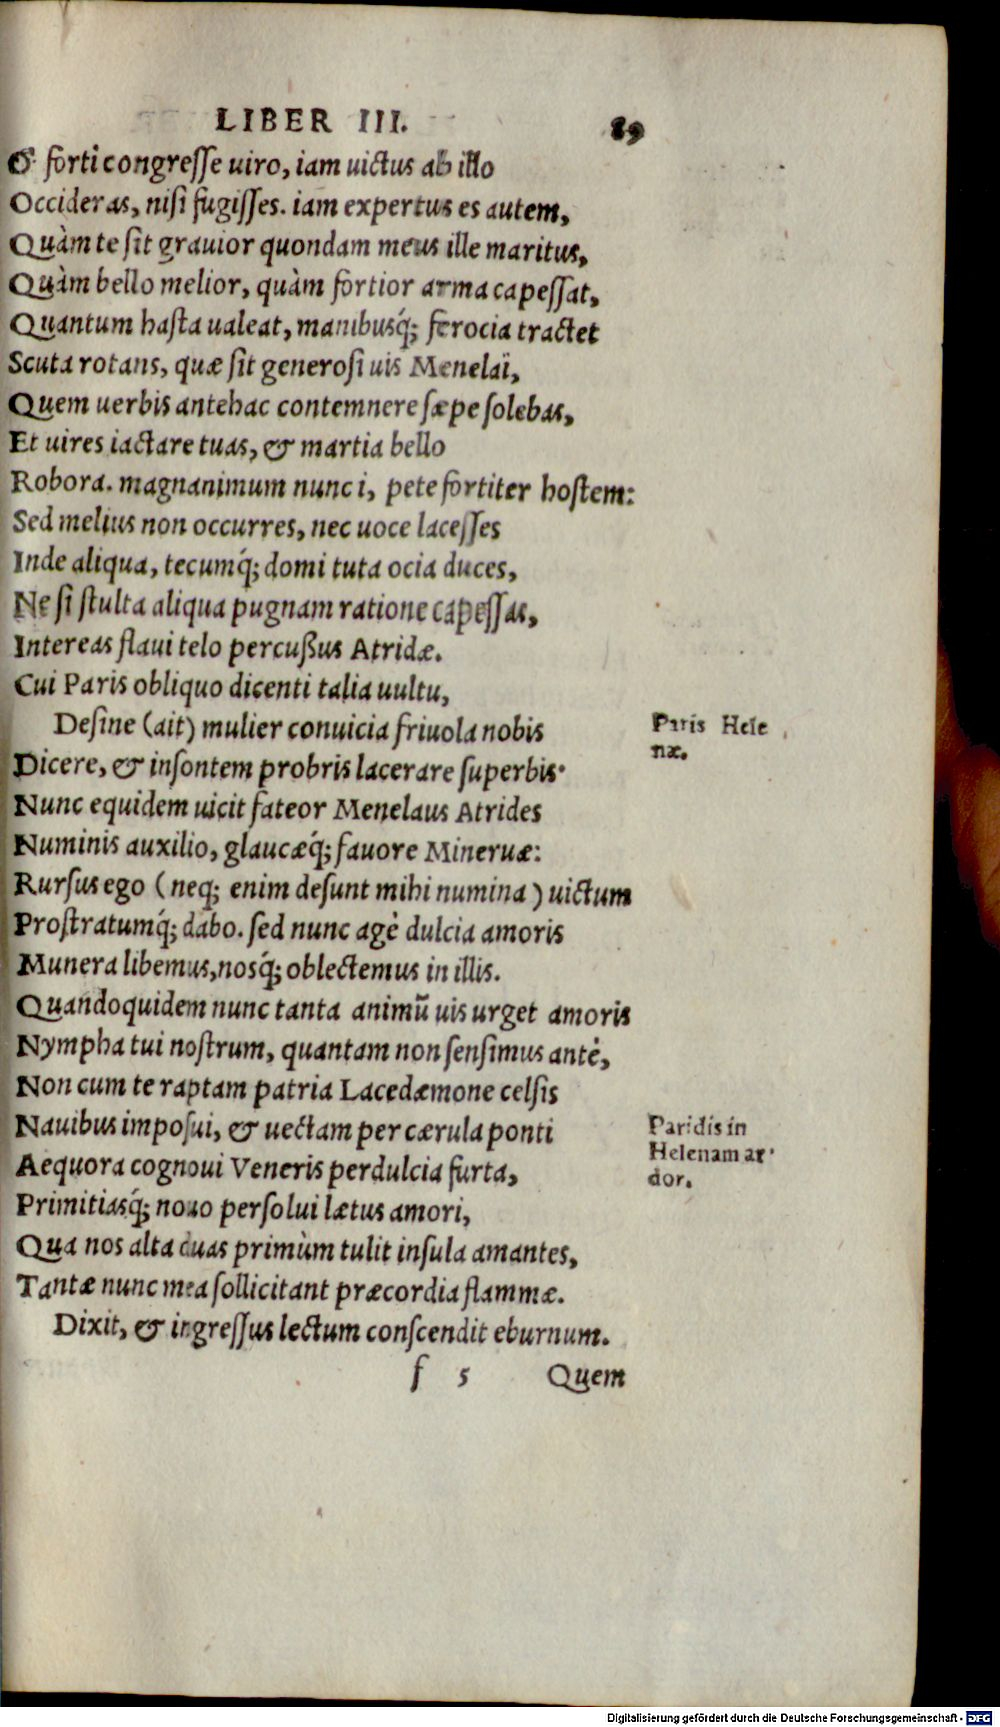 LIBER III. 89
& forti congresse uiro, iam uictus ab illo
Occideras, nisi fugisses. iam expertus es autem,
Quàm te sit grauior quondam meus ille maritus,
Quàm bello melior, quàm fortior arma capessat,
Quantum hasta ualeat, manibusq́; ferocia tractet
Scuta rotans, quæ sit generosi uis Menelai,
Quem uerbis antehac contemnere sæpe solebas,
Et uires iactare tuas, & martia bello
Robora. magnanimum nunc i, pete fortiter hostem:
Sed melius non occurres, nec uoce lacesses
Inde aliqua, tecumq́; domi tuta ocia duces,
Ne si stulta aliqua pugnam ratione capessas,
Intereas flaui telo percußus Atridæ.
Cui Paris obliquo dicenti talia uultu,
Desine (ait) mulier conuicia friuola nobis
Paris Hele
næ.
Dicere, & insontem probris lacerare superbis.
Nunc equidem uicit fateor Menelaus Atrides
Numinis auxilio, glaucæq́; fauore Mineruæ:
Rursus ego (neq; enim desunt mihi numina) uictum
Prostratumq́; dabo. sed nunc agè dulcia amoris
Munera libemus, nosq́; oblectemus in illis.
Quandoquidem nunc tanta animū uis urget amoris
Nympha tui nostrum, quantam non sensimus antè,
Non cum te raptam patria Lacedæmone celsis
Nauibus imposui, & uectam per cærula ponti
Paridis in
Helenam ar-
dor.
Aequora cognoui Veneris perdulcia furta,
Primitiasq́; nouo persolui lætus amori,
Qua nos alta duas primùm tulit insula amantes,
Tantæ nunc mea sollicitant præcordia flammæ.
Dixit, & ingressus lectum conscendit eburnum.
f 5 Quem
Digitalisierung gefördert durch die Deutsche Forschungsgemeinschaft - DFG